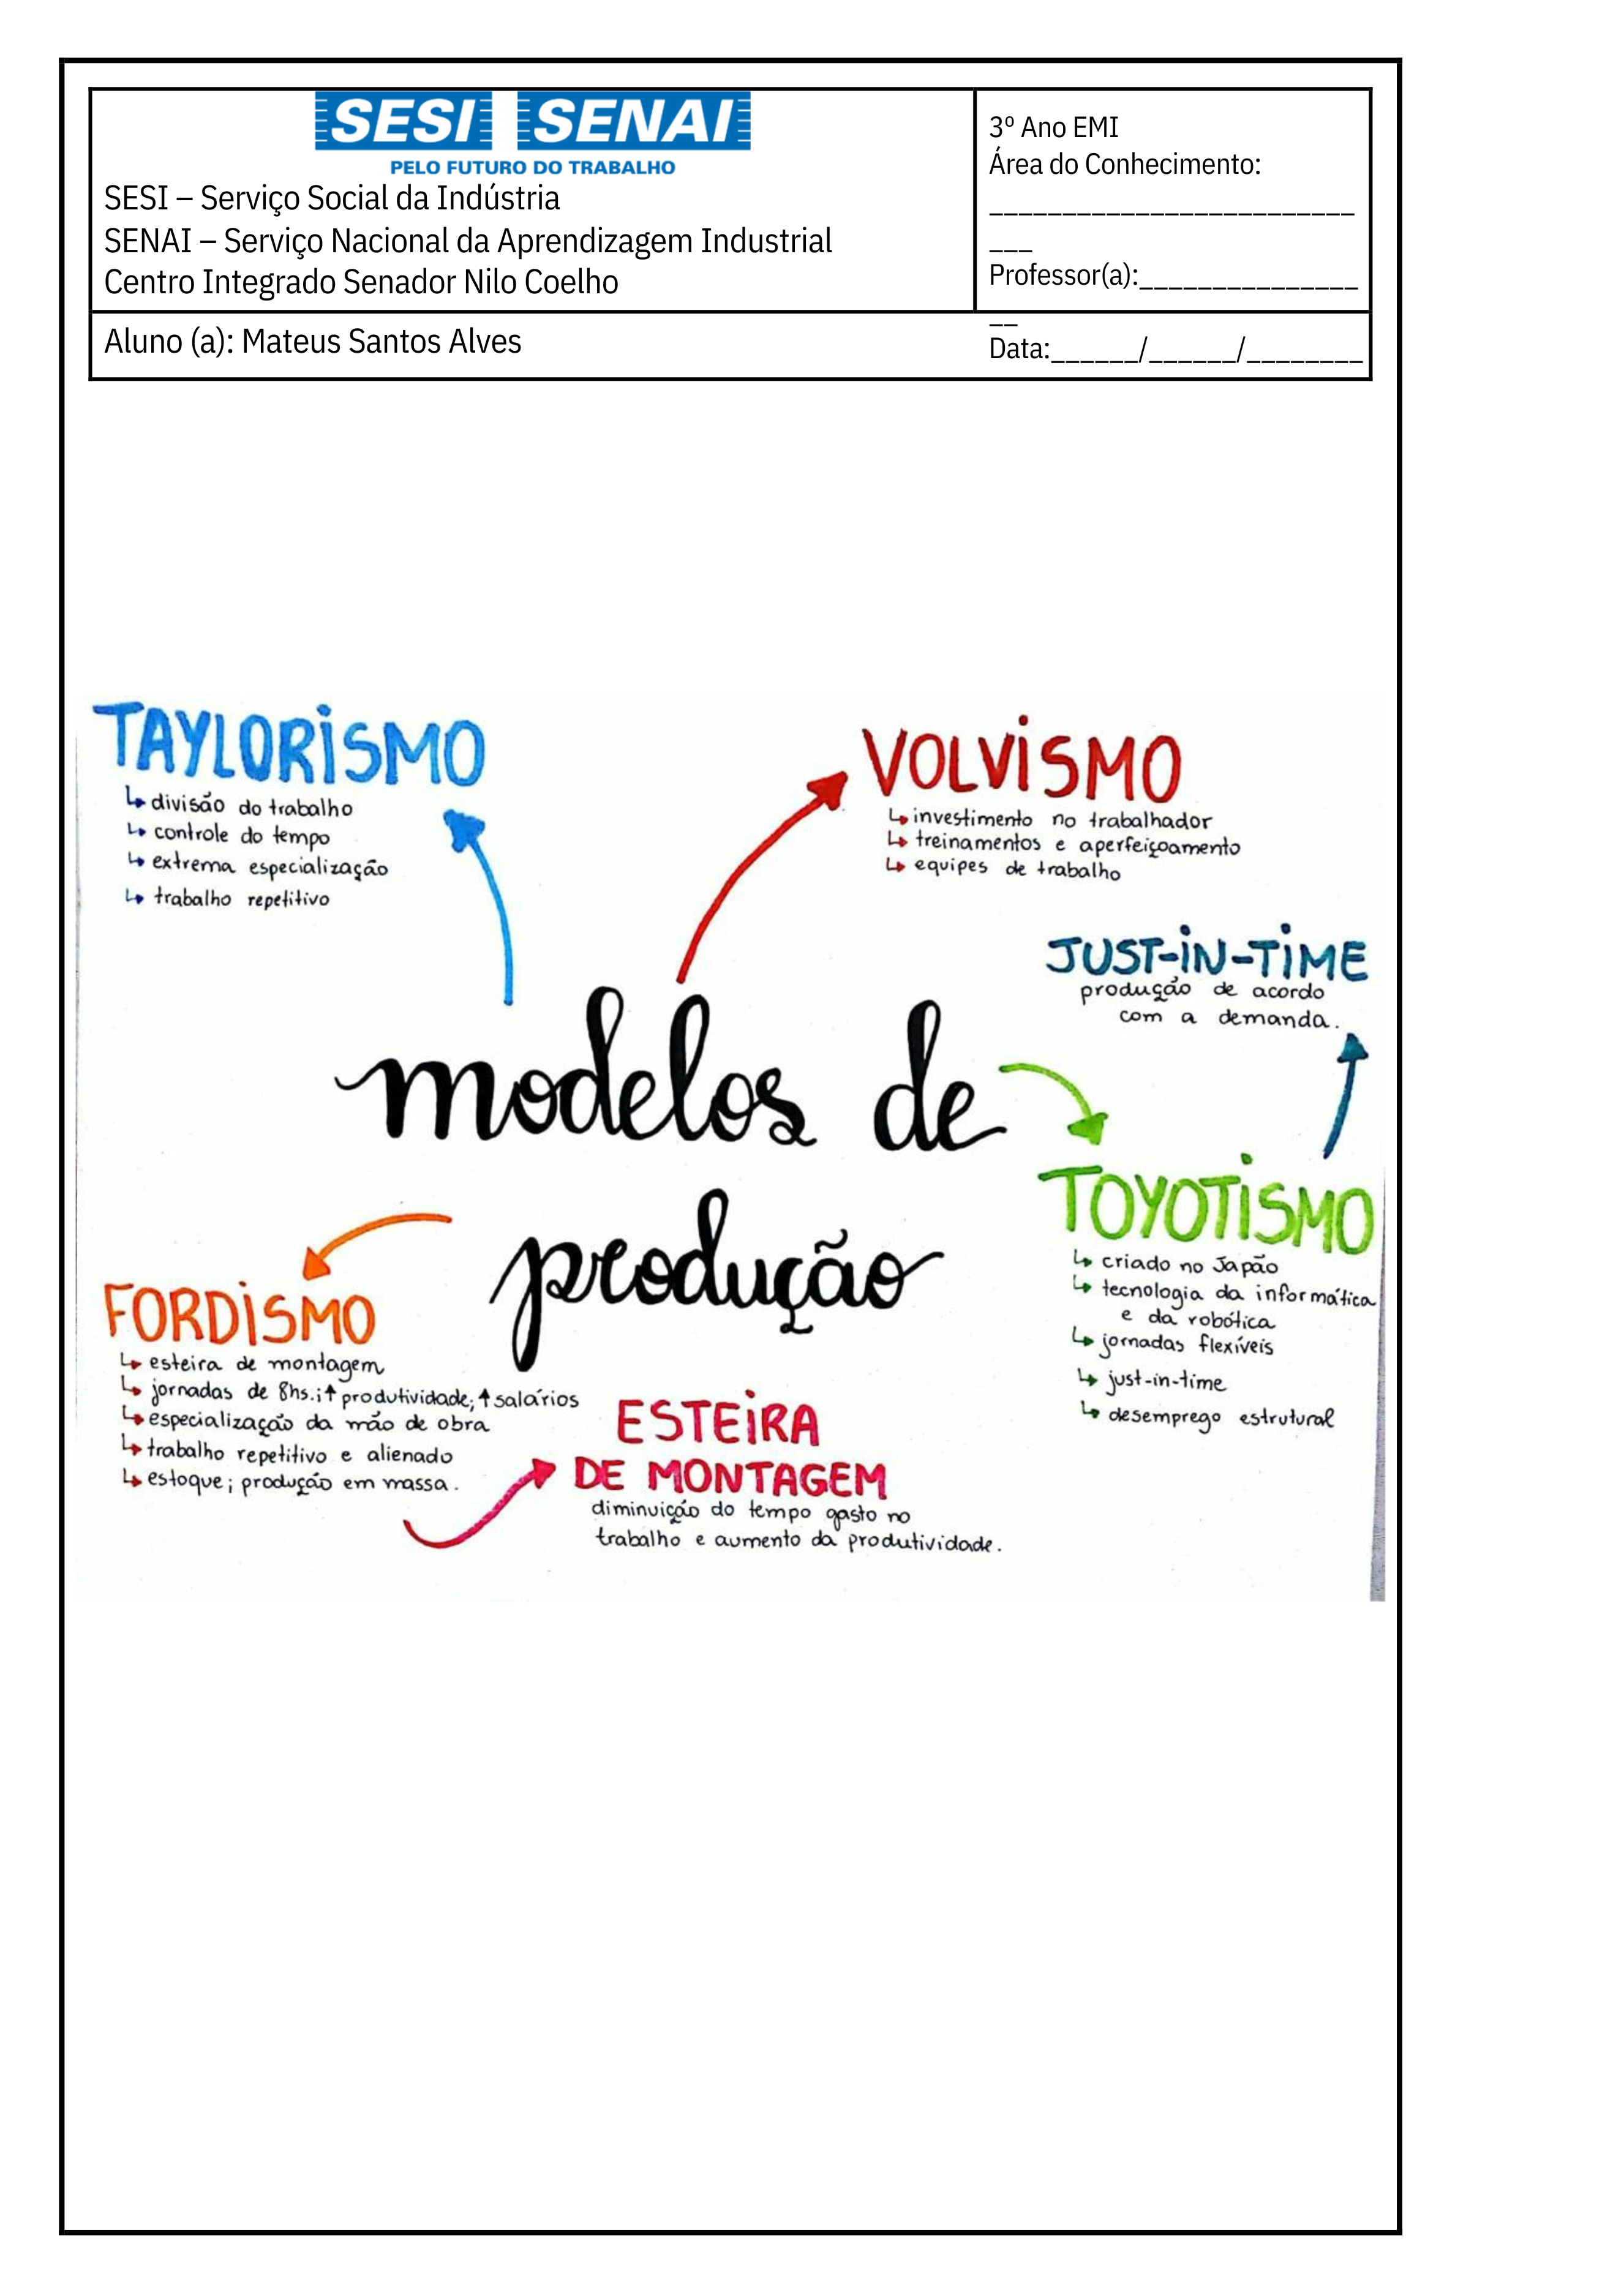 SESI SENAI
PELO FUTURO DO TRABALHO
SESI – Serviço Social da Indústria
SENAI – Serviço Nacional da Aprendizagem Industrial
Centro Integrado Senador Nilo Coelho
3º Ano EMI
Área do Conhecimento:
_________________________
___
Professor(a):_______________
__
Data:______/______/________
Aluno (a): Mateus Santos Alves
TAYLORISMO
divisão do trabalho
controle do tempo
extrema especialização
trabalho repetitivo
VOLVISMO
investimento no trabalhador
treinamentos e aperfeiçoamento
equipes de trabalho
JUST-IN-TIME
produção de acordo
com a demanda.
modelos de
produção
TOYOTISMO
criado no Japão
tecnologia da informática
e da robótica
jornadas flexíveis
just-in-time
desemprego estrutural
FORDISMO
esteira de montagem
jornadas de 8hs.;↑ produtividade; ↑ salários
especialização da mão de obra
trabalho repetitivo e alienado
estoque; produção em massa.
ESTEIRA
DE MONTAGEM
diminuição do tempo gasto no
trabalho e aumento da produtividade.